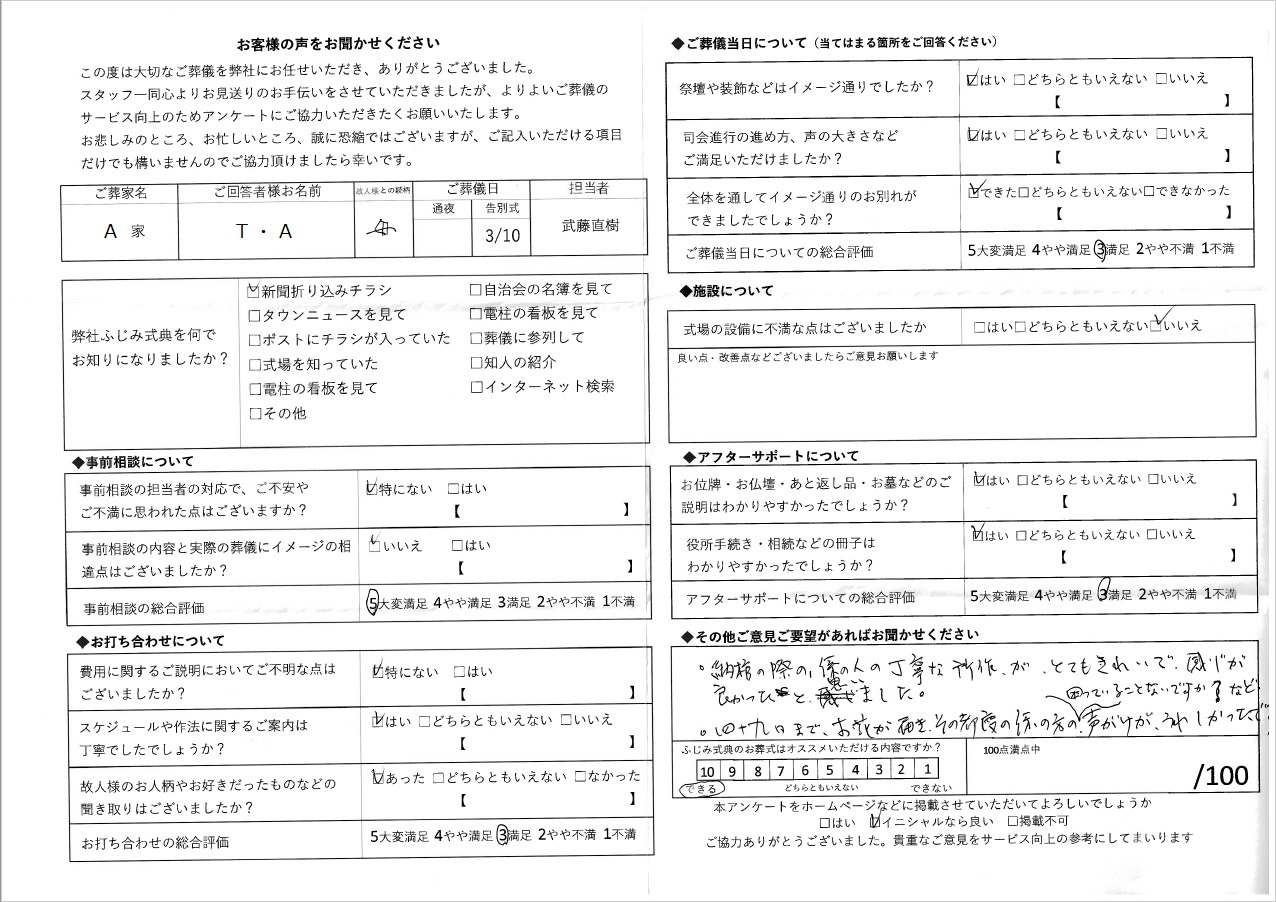 お客様の声をお聞かせください
この度は大切なご葬儀を弊社にお任せいただき、ありがとうございました。
スタッフ一同心よりお見送りのお手伝いをさせていただきましたが、よりよいご葬儀の
サービス向上のためアンケートにご協力いただきたくお願いいたします。
お悲しみのところ、お忙しいところ、誠に恐縮ではございますが、ご記入いただける項目
だけでも構いませんのでご協力頂けましたら幸いです。
ご葬家名 ご回答者様お名前 故人様との続柄 ご葬儀日 担当者
通夜 告別式
A 家 T・A 母 3/10 武藤直樹
弊社ふじみ式典を何で
お知りになりましたか？
☑新聞折り込みチラシ □自治会の名簿を見て
□タウンニュースを見て □電柱の看板を見て
□ポストにチラシが入っていた □葬儀に参列して
□式場を知っていた □知人の紹介
□電柱の看板を見て □インターネット検索
□その他
◆事前相談について
事前相談の担当者の対応で、ご不安や ☑特にない □はい
ご不満に思われた点はございますか？ 【 】
事前相談の内容と実際の葬儀にイメージの相 ☑いいえ □はい
違点はございましたか？ 【 】
事前相談の総合評価 5大変満足 4やや満足 3満足 2やや不満 1不満
◆お打ち合わせについて
費用に関するご説明においてご不明な点は ☑特にない □はい
ございましたか？ 【 】
スケジュールや作法に関するご案内は ☑はい □どちらともいえない □いいえ
丁寧でしたでしょうか？ 【 】
故人様のお人柄やお好きだったものなどの ☑あった □どちらともいえない □なかった
聞き取りはございましたか？ 【 】
お打ち合わせの総合評価 5大変満足 4やや満足 3満足 2やや不満 1不満
◆ご葬儀当日について（当てはまる箇所をご回答ください）
祭壇や装飾などはイメージ通りでしたか？ ☑はい □どちらともいえない □いいえ
【 】
司会進行の進め方、声の大きさなど ☑はい □どちらともいえない □いいえ
ご満足いただけましたか？ 【 】
全体を通してイメージ通りのお別れが ☑できた□どちらともいえない□できなかった
できましたでしょうか？ 【 】
ご葬儀当日についての総合評価 5大変満足 4やや満足 3満足 2やや不満 1不満
◆施設について
式場の設備に不満な点はございましたか □はい□どちらともいえない☑いいえ
良い点・改善点などございましたらご意見お願いします
◆アフターサポートについて
お位牌・お仏壇・あと返し品・お墓などのご ☑はい □どちらともいえない □いいえ
説明はわかりやすかったでしょうか？ 【 】
役所手続き・相続などの冊子は ☑はい □どちらともいえない □いいえ
わかりやすかったでしょうか？ 【 】
アフターサポートについての総合評価 5大変満足 4やや満足 3満足 2やや不満 1不満
◆その他ご意見ご要望があればお聞かせください
。納棺の際の、係の人の丁寧な所作、が、とてもきれいで、感じが
良かったと、思いました。
困っていることないですか？など、
。四十九日まで、お花が届き、その都度の係の方の、声がけが、うれしかったです
ふじみ式典のお葬式はオススメいただける内容ですか？ 100点満点中
10 9 8 7 6 5 4 3 2 1
できる どちらともいえない できない
/100
本アンケートをホームページなどに掲載させていただいてよろしいでしょうか
□はい ☑イニシャルなら良い □掲載不可
ご協力ありがとうございました。貴重なご意見をサービス向上の参考にしてまいります